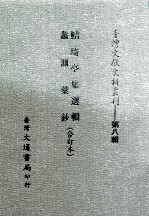 臺灣文獻史料叢刊──第八輯
鮚埼亭集選輯
蠡測彙鈔
(合訂本)
臺灣大通書局印行